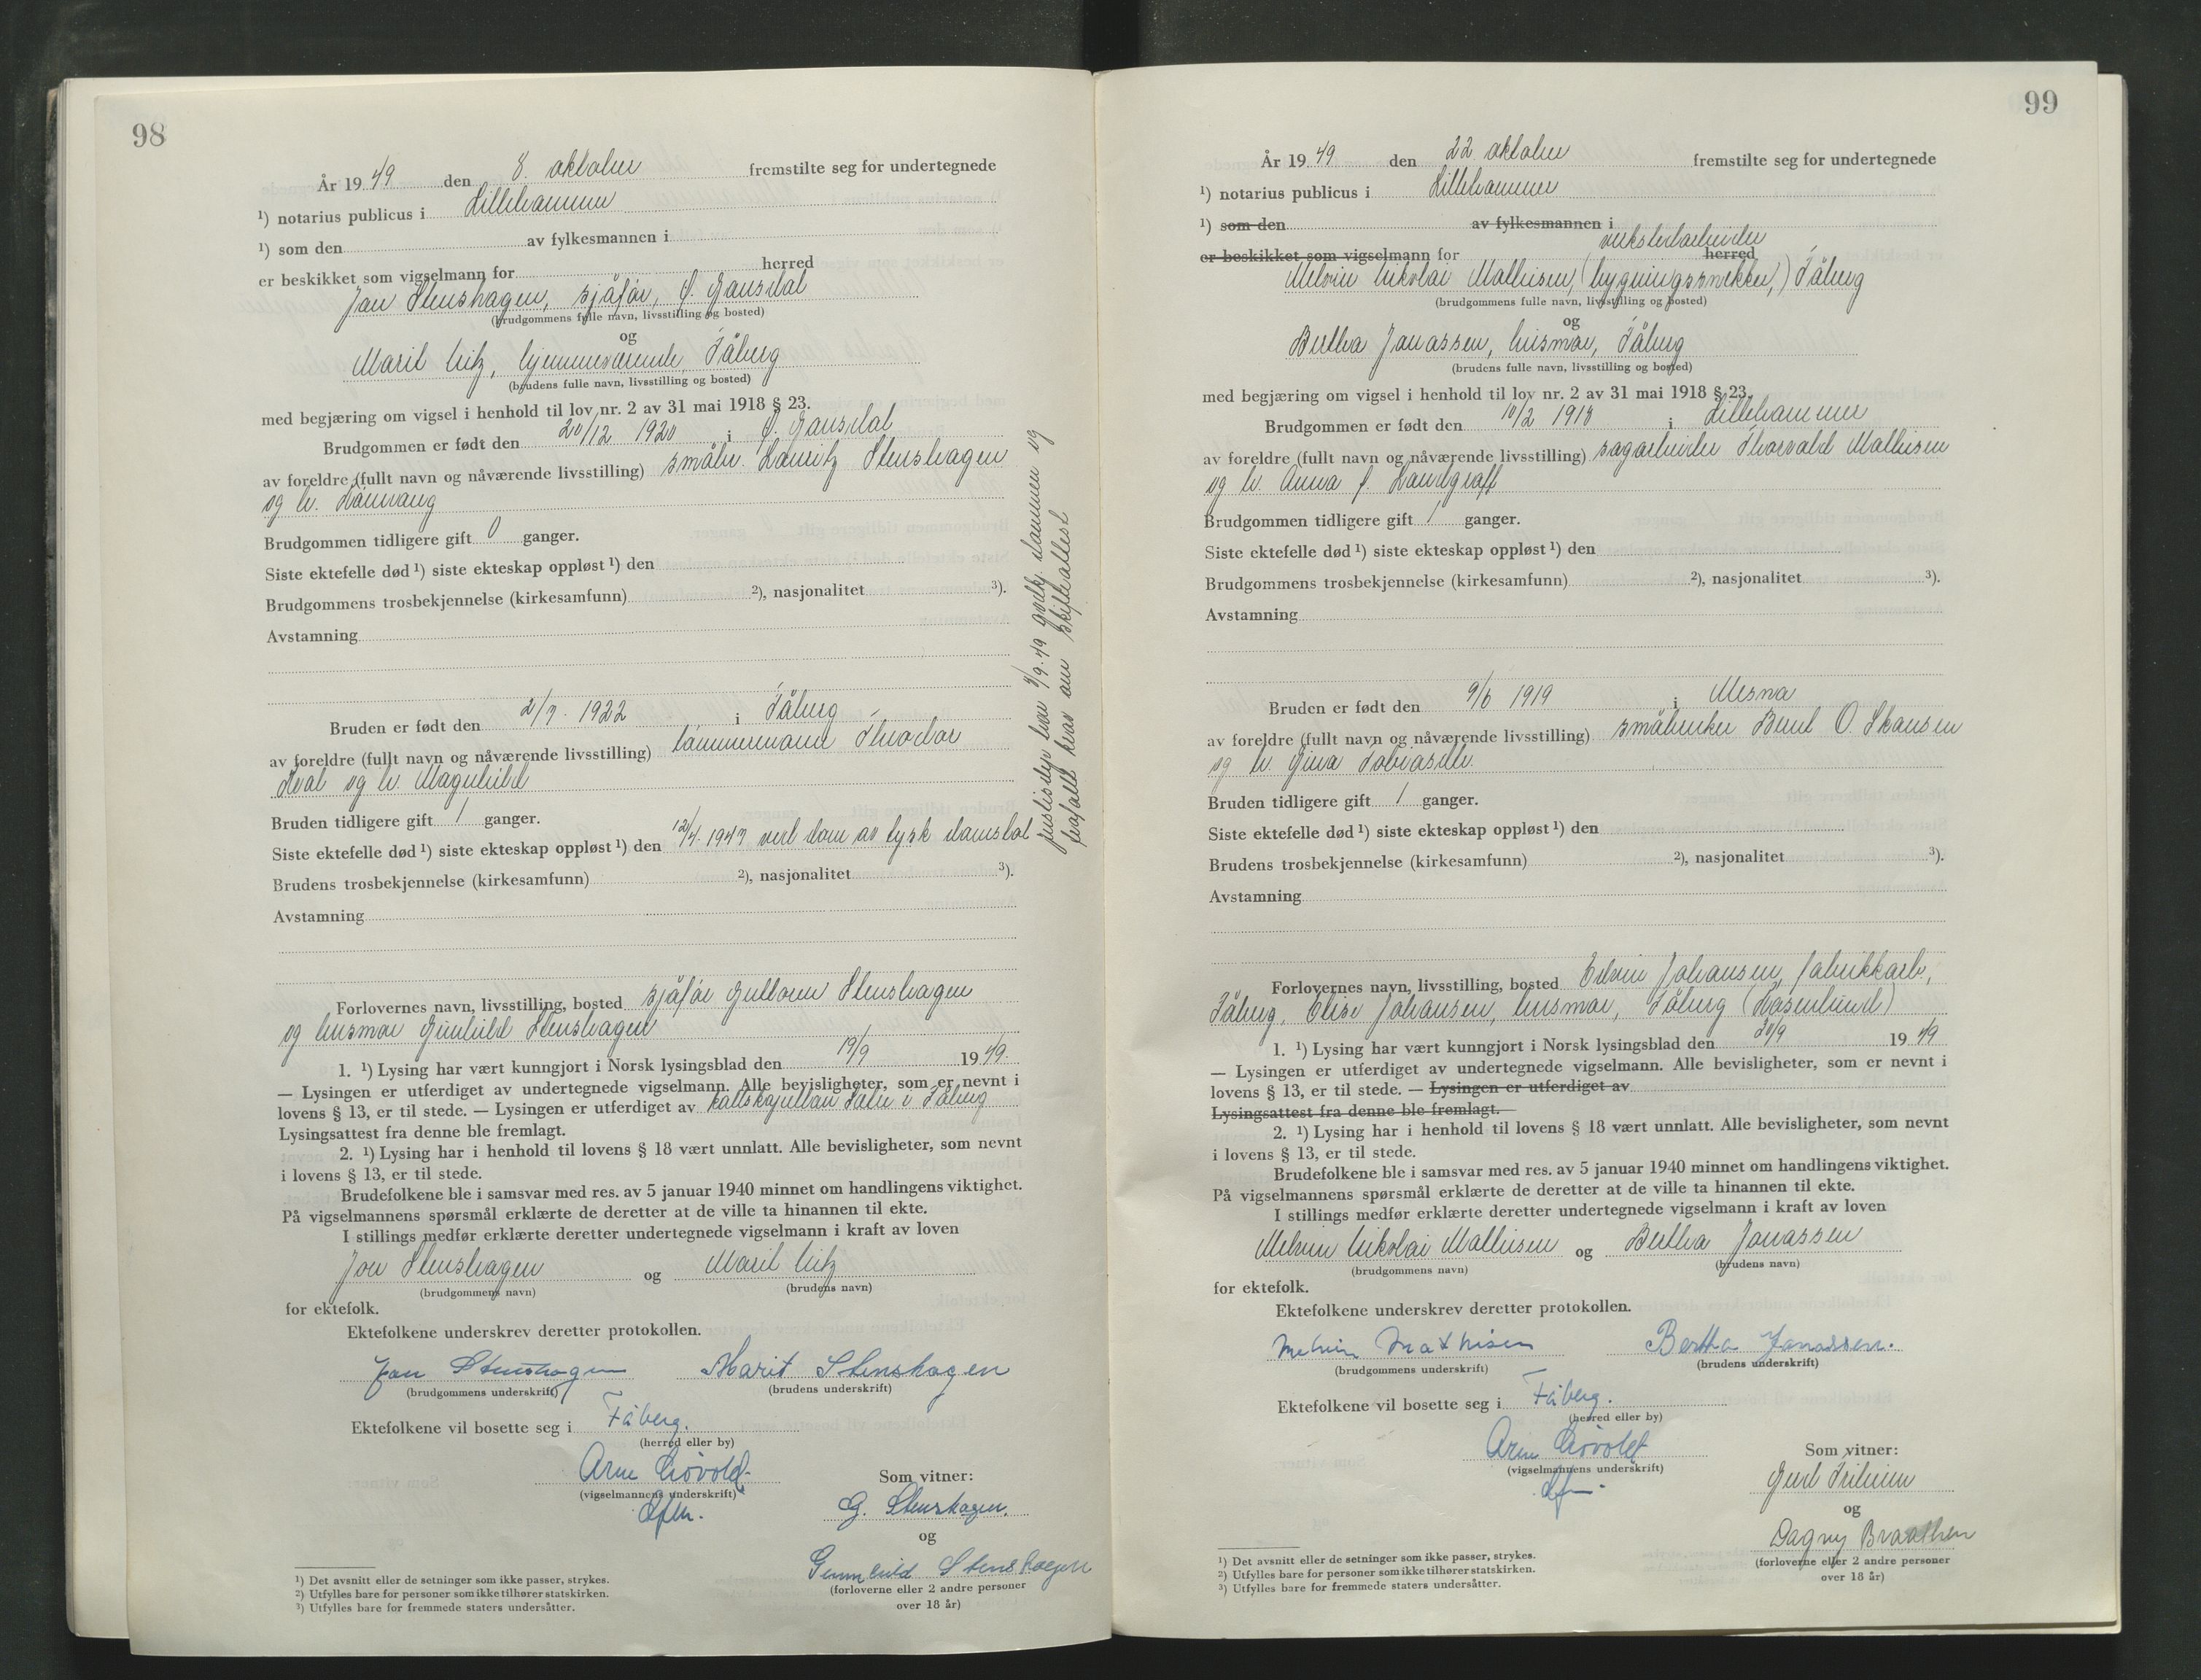 98
År 1949 den 8. oktober fremstilte seg for undertegnede
¹) notarius publicus i Lillehammer
¹) som den av fylkesmannen i
er beskikket som vigselmann for herred
Jon Stenshagen, sjåfør, Ø. Gausdal
(brudgommens fulle navn, livsstilling og bosted)
og
Marit Nitz, hjemmeværende, Fåberg
(brudens fulle navn, livsstilling og bosted)
med begjæring om vigsel i henhold til lov nr. 2 av 31 mai 1918 § 23.
Brudgommen er født den 20/12 1920 i Ø. Gausdal
av foreldre (fullt navn og nåværende livsstilling) småbr. Lauritz Stenshagen
og h.
Brudgommen tidligere gift 0 ganger.
Siste ektefelle død ¹) siste ekteskap oppløst ¹) den
Brudgommens trosbekjennelse (kirkesamfunn) ²), nasjonalitet ³).
Avstamning
Bruden er født den 2/7. 1922 i Fåberg
av foreldre (fullt navn og nåværende livsstilling) tømmermann Theodor
og h. Magnhild
Bruden tidligere gift 1 ganger.
Siste ektefelle død ¹) siste ekteskap oppløst ¹) den 12/4. 1947 ved dom av tysk domstol
justisdep. har 9/9. 49 godkj. dommen og
frafalt krav om skifteattest
Brudens trosbekjennelse (kirkesamfunn) ²), nasjonalitet ³).
Avstamning
Forlovernes navn, livsstilling, bosted sjåfør Guttorm Stenshagen
og husmor Gunhild Stenshagen
1. ¹) Lysing har vært kunngjort i Norsk lysingsblad den 19/9 1949.
— Lysingen er utferdiget av undertegnede vigselmann. Alle bevisligheter, som er nevnt i
lovens § 13, er til stede. — Lysingen er utferdiget av i Fåberg
Lysingsattest fra denne ble fremlagt.
2. ¹) Lysing har i henhold til lovens § 18 vært unnlatt. Alle bevisligheter, som nevnt
i lovens § 13, er til stede.
Brudefolkene ble i samsvar med res. av 5 januar 1940 minnet om handlingens viktighet.
På vigselmannens spørsmål erklærte de deretter at de ville ta hinannen til ekte.
I stillings medfør erklærte deretter undertegnede vigselmann i kraft av loven
Jon Stenshagen og Marit Nitz
(brudgommens navn) (brudens navn)
for ektefolk.
Ektefolkene underskrev deretter protokollen.
Jon Stenshagen Marit Stenshagen
(brudgommens underskrift) (brudens underskrift)
Ektefolkene vil bosette seg i Fåberg.
(herred eller by)
Arne Løvold
(vigselmannens underskrift)
Som vitner:
G. Stenshagen.
og
Gunnhild Stenshagen
(forloverne eller 2 andre personer
over 18 år)
¹) Det avsnitt eller de setninger som ikke passer, strykes.
²) Utfylles bare for personer som ikke tilhører statskirken.
³) Utfylles bare for fremmede staters undersåtter.
99
År 1949 den 22 oktober fremstilte seg for undertegnede
¹) notarius publicus i Lillehammer
¹) som den av fylkesmannen i
er beskikket som vigselmann for herred
verkstedarbeider
Melvin Nikolai Mathisen, (bygningssnekker,) Fåberg
(brudgommens fulle navn, livsstilling og bosted)
og
Bertha Jonassen, husmor, Fåberg
(brudens fulle navn, livsstilling og bosted)
med begjæring om vigsel i henhold til lov nr. 2 av 31 mai 1918 § 23.
Brudgommen er født den 10/2 1918 i Lillehammer
av foreldre (fullt navn og nåværende livsstilling) sagarbeider Thorvald Mathisen
og h. Anna f. Landgraff
Brudgommen tidligere gift 1 ganger.
Siste ektefelle død ¹) siste ekteskap oppløst ¹) den
Brudgommens trosbekjennelse (kirkesamfunn) ²), nasjonalitet ³).
Avstamning
Bruden er født den 9/6 1919 i Mesna
av foreldre (fullt navn og nåværende livsstilling) småbruker Bernt O. Skansen
og h. Gina Tobiasdtr.
Bruden tidligere gift 1 ganger.
Siste ektefelle død ¹) siste ekteskap oppløst ¹) den
Brudens trosbekjennelse (kirkesamfunn) ²), nasjonalitet ³).
Avstamning
Forlovernes navn, livsstilling, bosted Edvin Johansen, fabrikkarb.,
Fåberg, Elise Johansen, husmor, Fåberg (Røsenlund)
1. ¹) Lysing har vært kunngjort i Norsk lysingsblad den 30/9 1949
— Lysingen er utferdiget av undertegnede vigselmann. Alle bevisligheter, som er nevnt i
lovens § 13, er til stede. — Lysingen er utferdiget av
Lysingsattest fra denne ble fremlagt.
2. ¹) Lysing har i henhold til lovens § 18 vært unnlatt. Alle bevisligheter, som nevnt
i lovens § 13, er til stede.
Brudefolkene ble i samsvar med res. av 5 januar 1940 minnet om handlingens viktighet.
På vigselmannens spørsmål erklærte de deretter at de ville ta hinannen til ekte.
I stillings medfør erklærte deretter undertegnede vigselmann i kraft av loven
Melvin Nikolai Mathisen og Bertha Jonassen
(brudgommens navn) (brudens navn)
for ektefolk.
Ektefolkene underskrev deretter protokollen.
Melvin Mathisen Bertha Jonassen.
(brudgommens underskrift) (brudens underskrift)
Ektefolkene vil bosette seg i Fåberg.
(herred eller by)
Arne Løvold
(vigselmannens underskrift)
Som vitner:
Gerd
og
Dagny Braathen
(forloverne eller 2 andre personer
over 18 år)
¹) Det avsnitt eller de setninger som ikke passer, strykes.
²) Utfylles bare for personer som ikke tilhører statskirken.
³) Utfylles bare for fremmede staters undersåtter.